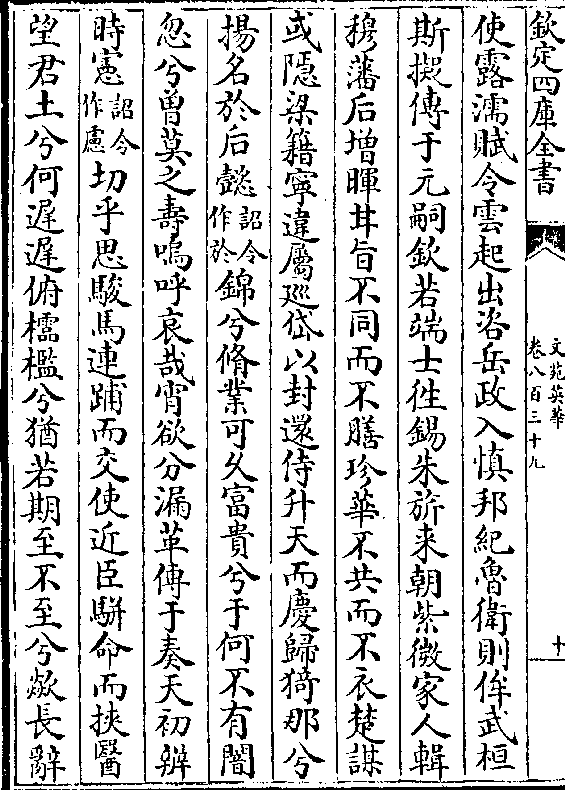 欽定四庫全書
文苑英華
卷八百三十九
十
使露濡賦令雲起出咨岳政入慎邦紀魯衛則侔武桓
斯擬傳于元嗣欽若端士徃錫朱旂来朝紫微家人輯
穆藩后増暉甘旨不同而不膳珍華不共而不衣楚謀
或隱梁籍寧違屬廵岱以封還侍升天而慶歸猗那兮
揚名於后懿詔令作於錦兮脩業可久富貴兮于何不有闇
忽兮曽莫之壽嗚呼哀哉宵欲分漏革傳于奏天初辨
時寒詔令作慮切乎思駿馬連踊而交使近臣駢命而挾醫
望君土兮何遲遲俯櫺檻兮猶若期至不至兮歘長辭